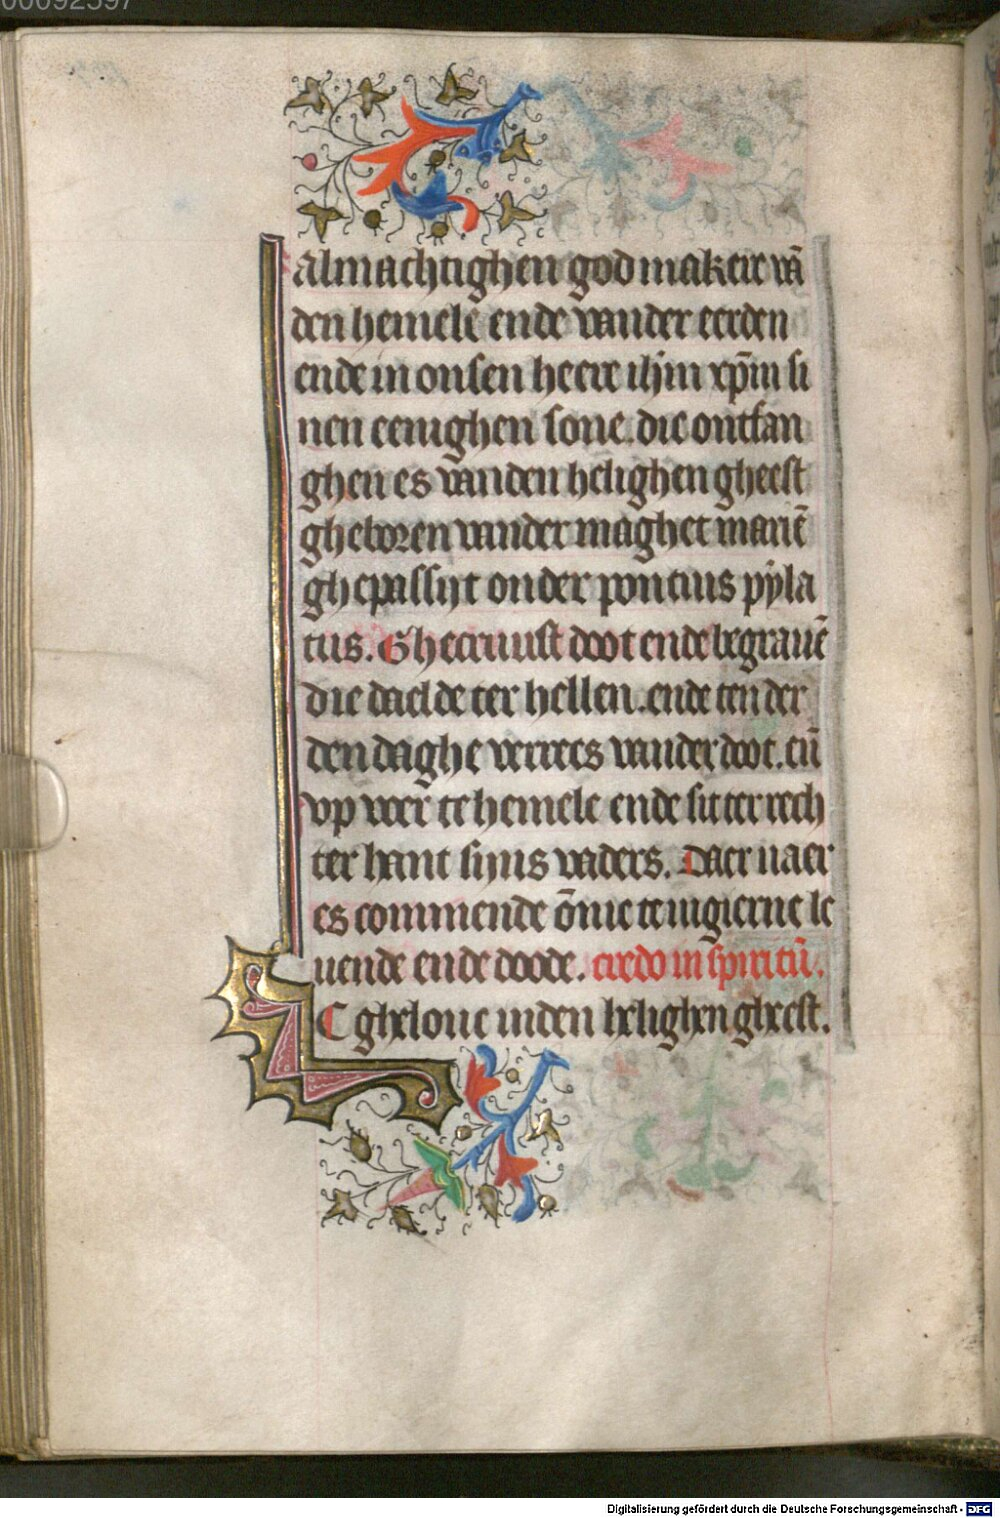 00092597
almachtighen god makere vā
den hemele ende vander eerden
ende in onsen heere ihm xp̄m si
nen eenighen sone. die ontfan
ghen es vanden helighen gheest
gheboren vander maghet mariē
ghepassijt onder poncius pyla
tus. Ghecruust doot ende begrauē
die daelde ter hellen. ende ten der
den daghe verrees vander doot. eñ
vp veer te hemele ende sit ter rech
ter hant sijns vaders. Daer naer
es commende ōme te iugierne le
uende ende doode. credo in spiritū.
Ic gheloue inden helighen gheest.
Digitalisierung gefördert durch die Deutsche Forschungsgemeinschaft - DFG